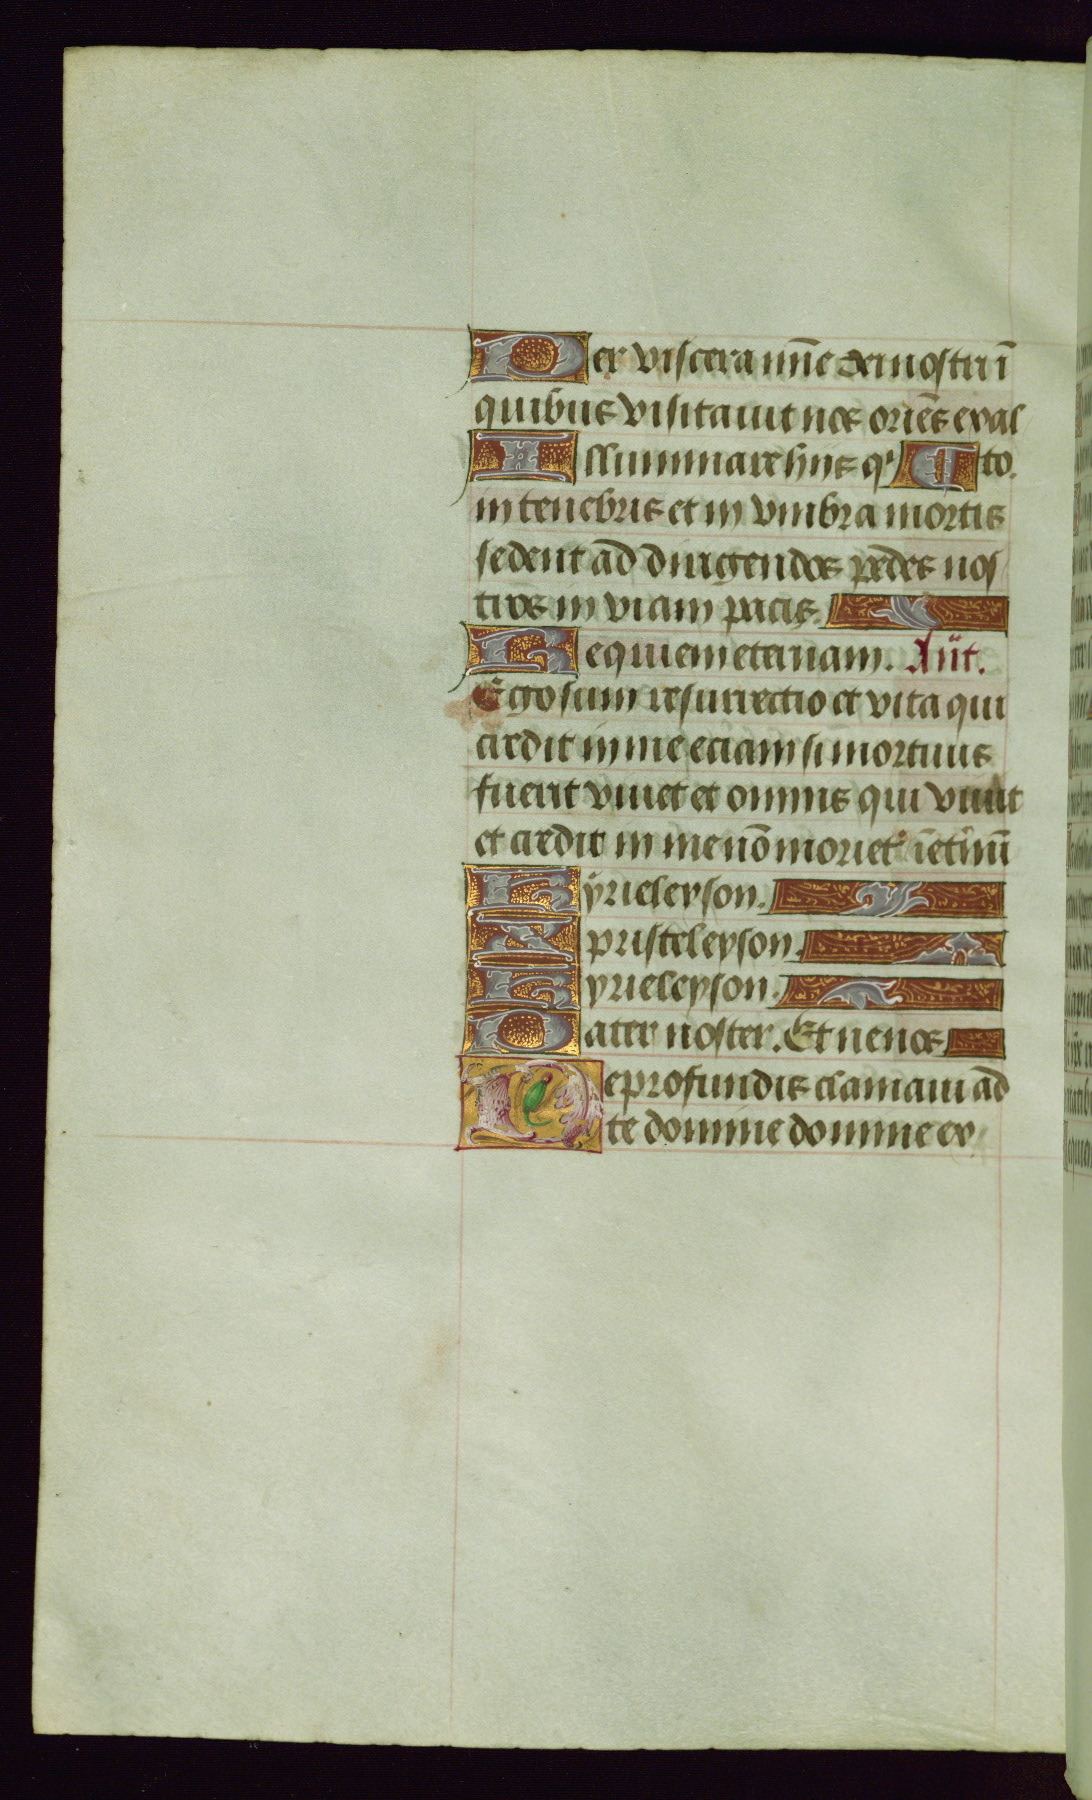 Per viscera mīe dei nostri ī
quibus visitauit nos oriēs exal
Illuminare hiis qͥ to.
in tenebris et in vmbra mortis
sedent ad dirigendos pedes nos
tros in viam pacis.
Requiem eternam. Añt.
Ego sum resurrectio et vita qui
credit in me eciam si mortuus
fuerit viuet et omnis qui viuit
et credit in me nō moriet᷑ ī et̾nū
Kyrieleyson.
Xpristeleyson.
Kyrieleyson.
Pater noster. Et ne nos
De profundis clamaui ad
te domine domine ex